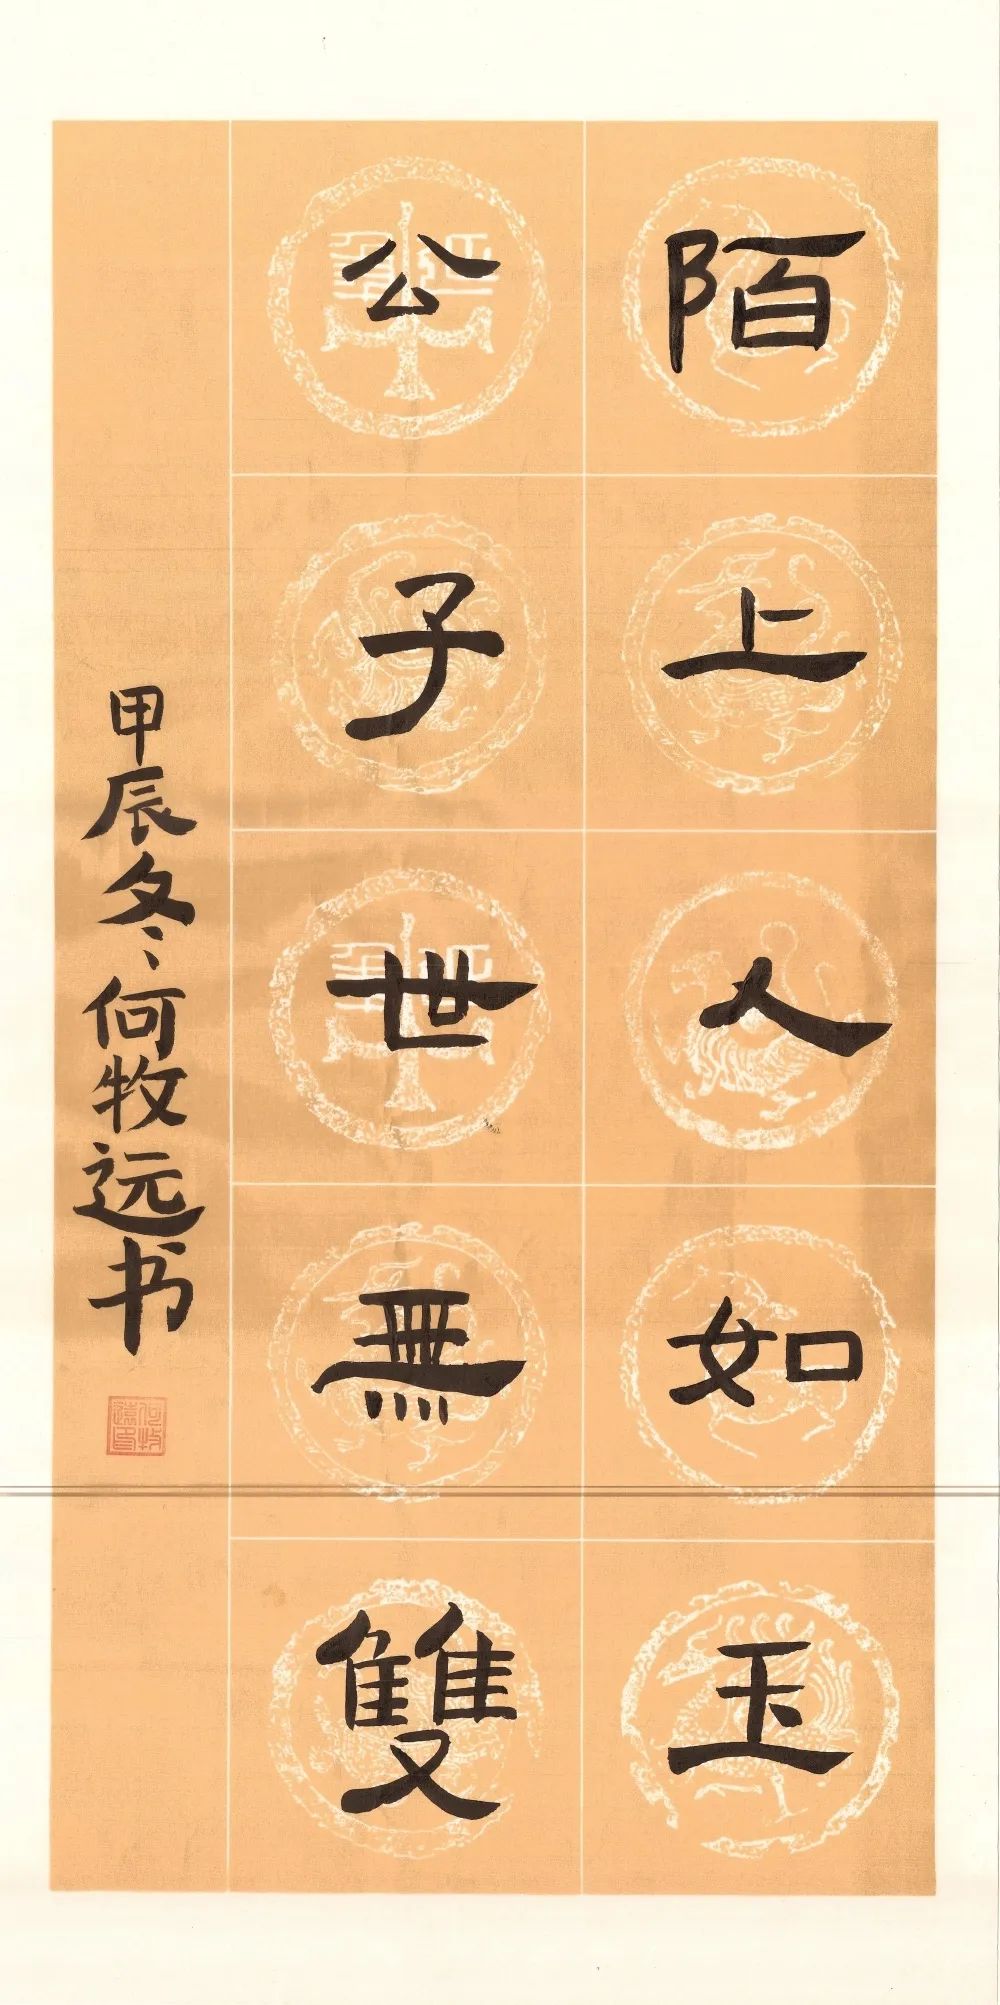 陌上人如玉
公子世無雙
甲辰冬何牧远书
何牧遠印